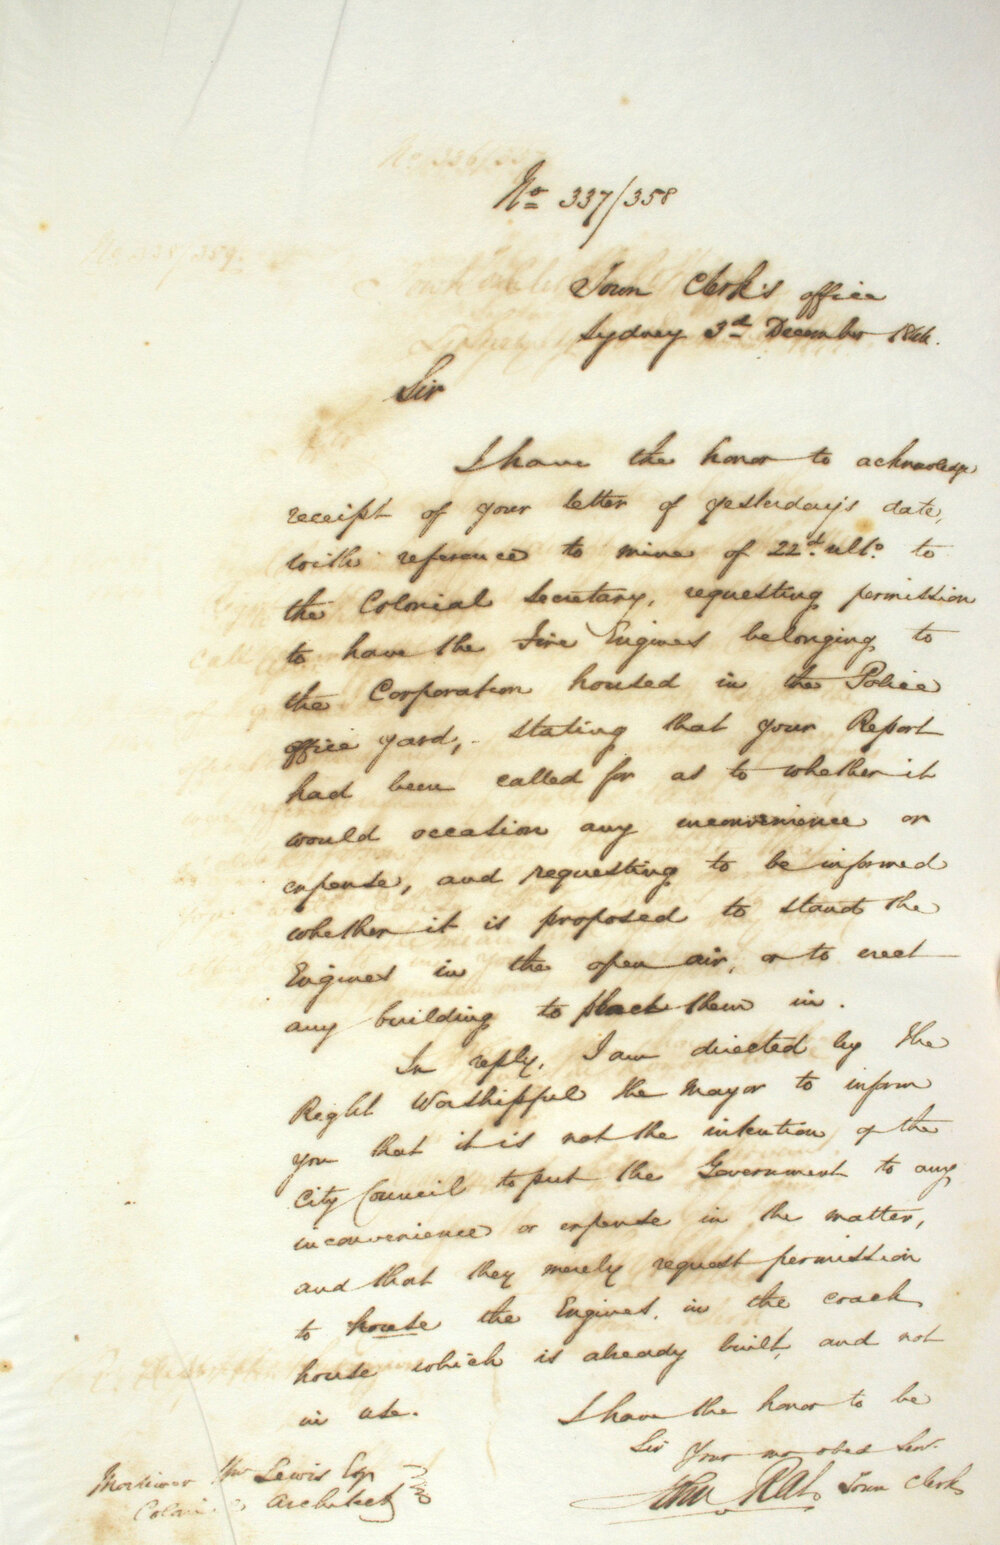 No 337/358
Town Clerk's office
Sydney 3d December 1844.
Sir
I have the honor to acknowledge
receipt of your letter of yesterday's date,
with reference to mine of 22d ulto. to
the Colonial Secretary, requesting permission
to have the Fire Engines belonging to
the Corporation housed in the Police
office yard, stating that your Report
had been called for as to whether it
would occasion any inconvenience or
expense, and requesting to be informed
whether it is proposed to stand the
Engines in the open air, or to erect
any building to place them in.
In reply, I am directed by the
Right Worshipful the Mayor to inform
you that it is not the intention of the
City Council to put the Government to any
inconvenience or expense in the matter,
and that they merely request permission
to house the Engines, in the coach
house which is already built, and not
in use.
I have the honor to be
Sir
Your mo obed Serv.
Town Clerk
Mortimer Wm Lewis Esq
Colonial Architect